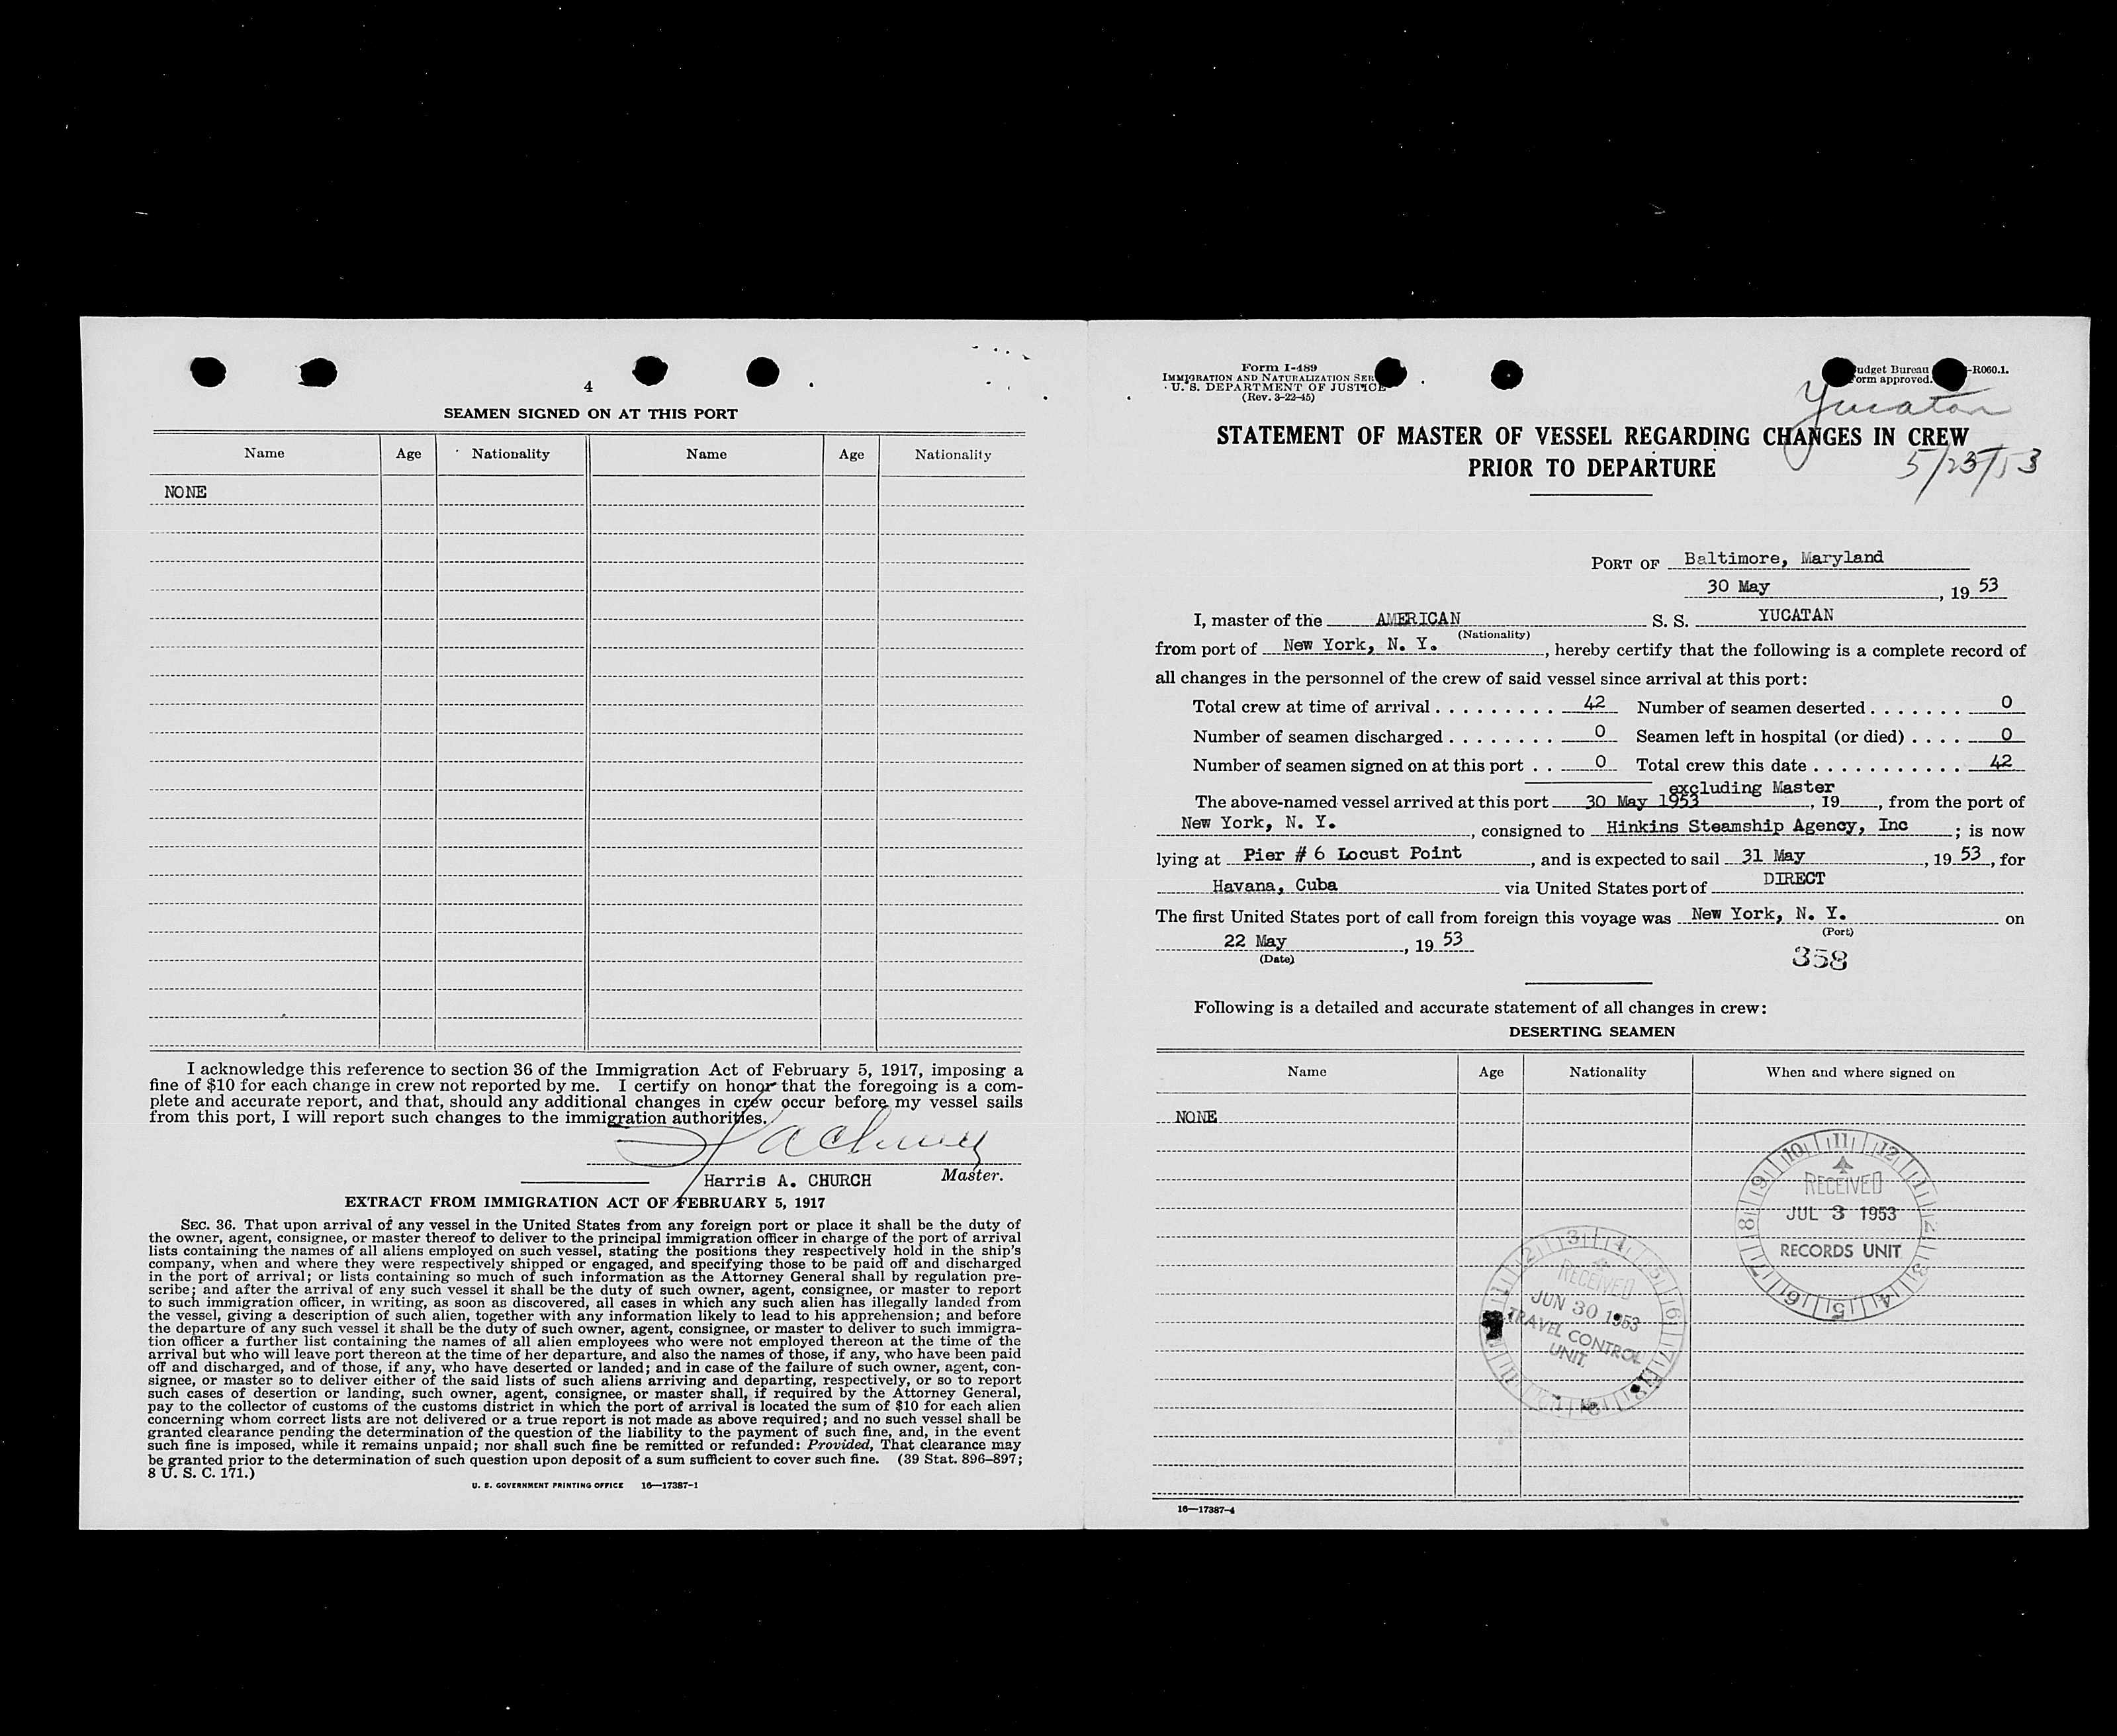 4
SEAMEN SIGNED ON AT THIS PORT
Name Age Nationality Name Age Nationality
NONE
I acknowledge this reference to section 36 of the Immigration Act of February 5, 1917, imposing a
fine of $10 for each change in crew not reported by me. I certify on honor that the foregoing is a com-
plete and accurate report, and that, should any additional changes in crew occur before my vessel sails
from this port, I will report such changes to the immigration authorities.
Harris A. CHURCH Master.
EXTRACT FROM IMMIGRATION ACT OF FEBRUARY 5, 1917
SEC. 36. That upon arrival of any vessel in the United States from any foreign port or place it shall be the duty of
the owner, agent, consignee, or master thereof to deliver to the principal immigration officer in charge of the port of arrival
lists containing the names of all aliens employed on such vessel, stating the positions they respectively hold in the ship's
company, when and where they were respectively shipped or engaged, and specifying those to be paid off and discharged
in the port of arrival; or lists containing so much of such information as the Attorney General shall by regulation pre-
scribe; and after the arrival of any such vessel it shall be the duty of such owner, agent, consignee, or master to report
to such immigration officer, in writing, as soon as discovered, all cases in which any such alien has illegally landed from
the vessel, giving a description of such alien, together with any information likely to lead to his apprehension; and before
the departure of any such vessel it shall be the duty of such owner, agent, consignee, or master to deliver to such immigra-
tion officer a further list containing the names of all alien employees who were not employed thereon at the time of the
arrival but who will leave port thereon at the time of her departure, and also the names of those, if any, who have been paid
off and discharged, and of those, if any, who have deserted or landed; and in case of the failure of such owner, agent, con-
signee, or master so to deliver either of the said lists of such aliens arriving and departing, respectively, or so to report
such cases of desertion or landing, such owner, agent, consignee, or master shall, if required by the Attorney General,
pay to the collector of customs of the customs district in which the port of arrival is located the sum of $10 for each alien
concerning whom correct lists are not delivered or a true report is not made as above required; and no such vessel shall be
granted clearance pending the determination of the question of the liability to the payment of such fine, and, in the event
such fine is imposed, while it remains unpaid; nor shall such fine be remitted or refunded: Provided, That clearance may
be granted prior to the determination of such question upon deposit of a sum sufficient to cover such fine. (39 Stat. 896–897;
8 U. S. C. 171.)
U. S. GOVERNMENT PRINTING OFFICE 16—17387-1
Form I-489
IMMIGRATION AND NATURALIZATION SER
U. S. DEPARTMENT OF JUSTICE
(Rev. 3-22-45)
udget Bureau -R060.1.
orm approved.
Yucatan
STATEMENT OF MASTER OF VESSEL REGARDING CHANGES IN CREW
PRIOR TO DEPARTURE
5/23/53
PORT OF Baltimore, Maryland
30 May, 19 53
I, master of the AMERICAN S. S. YUCATAN
(Nationality)
from port of New York, N. Y., hereby certify that the following is a complete record of
all changes in the personnel of the crew of said vessel since arrival at this port:
Total crew at time of arrival . . . . . . . . . . 42 Number of seamen deserted . . . . . . . 0
Number of seamen discharged . . . . . . . . 0 Seamen left in hospital (or died) . . . . 0
Number of seamen signed on at this port . . 0 Total crew this date . . . . . . . . . . . 42
excluding Master
The above-named vessel arrived at this port 30 May 1953, 19, from the port of
New York, N. Y., consigned to Hinkins Steamship Agency, Inc; is now
lying at Pier # 6 Locust Point, and is expected to sail 31 May, 19 53, for
Havana, Cuba via United States port of DIRECT
The first United States port of call from foreign this voyage was New York, N. Y. on
(Port)
22 May, 19 53
(Date)
358
Following is a detailed and accurate statement of all changes in crew:
DESERTING SEAMEN
Name Age Nationality When and where signed on
NONE
RECEIVED
JUL 3 1953
RECORDS UNIT
RECEIVED
JUN 30 1953
TRAVEL CONTROL
UNIT
16—17387-4